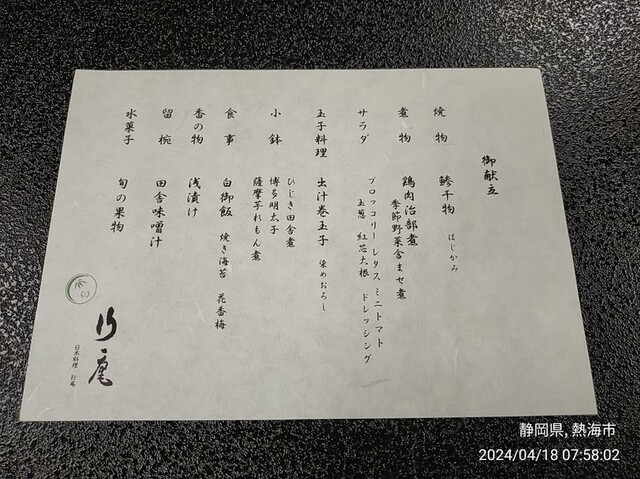 御献立
焼物 鯵干物 はじかみ
煮物 鶏肉治部煮
季節野菜含ませ煮
サラダ ブロッコリー レタス ミニトマト
玉葱 紅芯大根 ドレッシング
玉子料理 出汁巻玉子 染めおろし
小鉢 ひじき田舎煮
博多明太子
薩摩芋れもん煮
食事 白御飯 焼き海苔 花香梅
香の物 浅漬け
留椀 田舎味噌汁
水菓子 旬の果物
日本料理 行庵
静岡県, 熱海市
2024/04/18 07:58:02